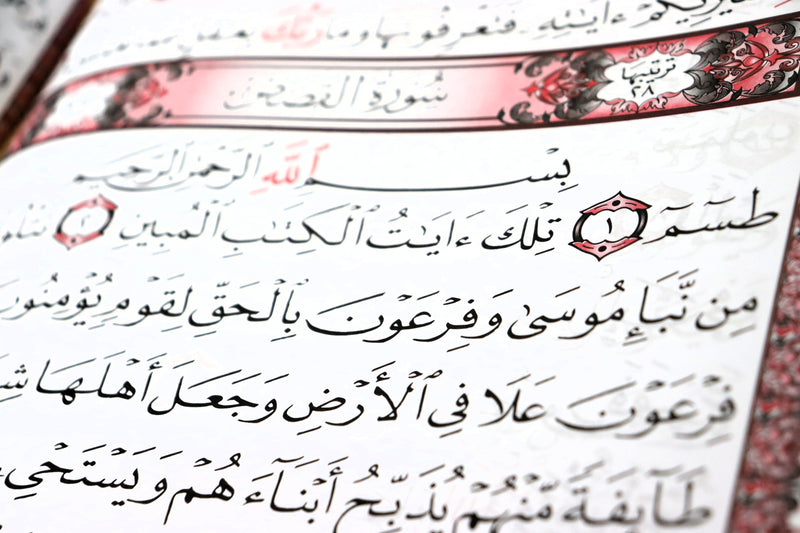 سَيُرِيكُمْ ءَايَٰتِهِۦ فَتَعْرِفُونَهَا وَمَا رَبُّكَ بِغَٰفِلٍ
سُورَةُ القَصَصِ
ترتيبها
٢٨
بِسْمِ ٱللَّهِ ٱلرَّحْمَٰنِ ٱلرَّحِيمِ
طسٓمٓ ١ تِلْكَ ءَايَٰتُ ٱلْكِتَٰبِ ٱلْمُبِينِ ٢
مِن نَّبَإِ مُوسَىٰ وَفِرْعَوْنَ بِٱلْحَقِّ لِقَوْمٍ يُؤْمِنُونَ
فِرْعَوْنَ عَلَا فِي ٱلْأَرْضِ وَجَعَلَ أَهْلَهَا
طَآئِفَةً مِّنْهُمْ يُذَبِّحُ أَبْنَآءَهُمْ وَيَسْتَحْيِۦ